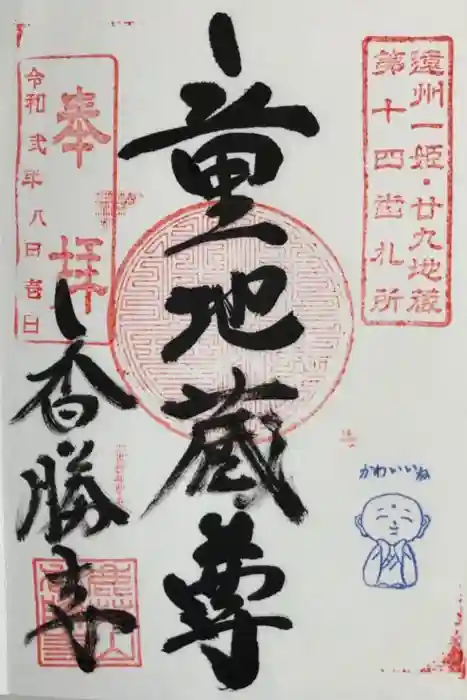 遠州一姫・廿九地蔵
第十四番札所
童地蔵尊
奉拝
令和弐年八月壱日
香勝寺
かわいいね